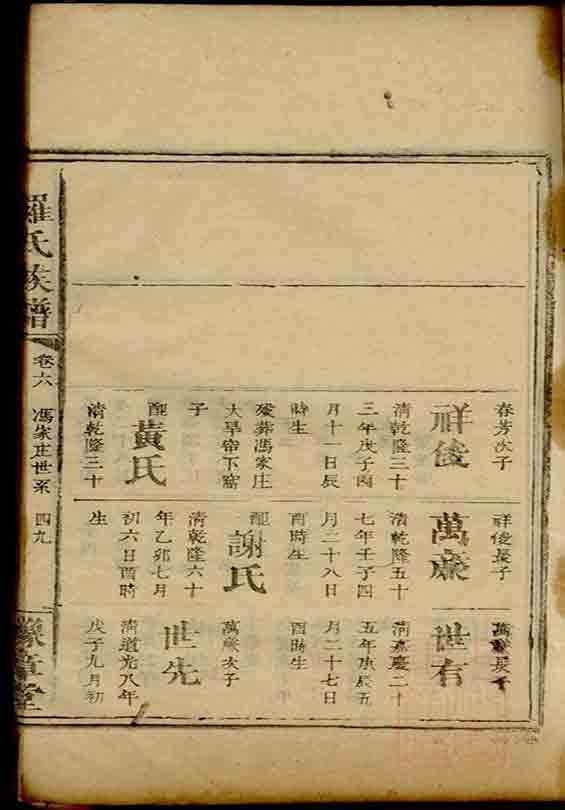 羅氏族譜
卷六
馮家庄世系
四九
豫章堂
春芳次子
祥俊
清乾隆三十
三年戊子四
月十一日辰
時生
歿葬馮家庄
大旱帘下窩
子
配黃氏
清乾隆三十
祥俊長子
萬
清乾隆五十
七年壬子四
月二十八日
酉時生
配謝氏
清乾隆六十
年乙卯七月
初六日酉時
生
萬長子
世有
清嘉慶二十
五年庚辰五
月二十七日
酉時生
萬次子
世先
清道光八年
戊子九月初